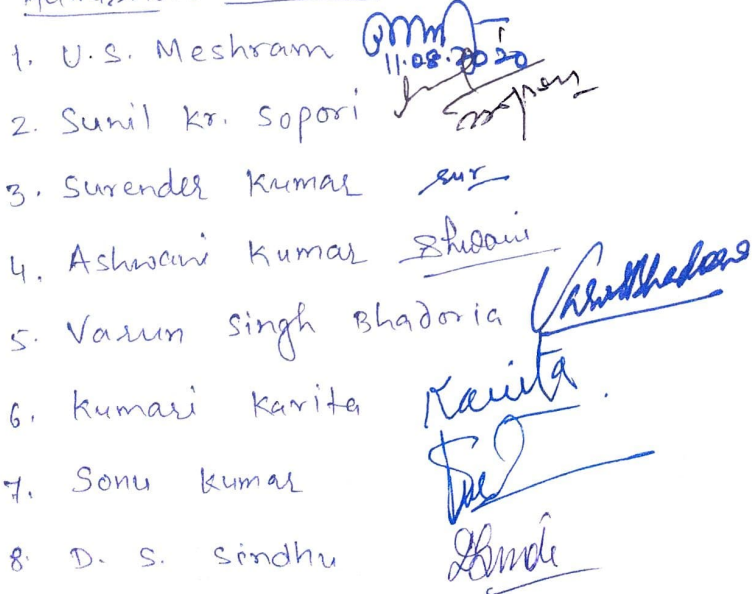 1. U.S. Meshram
11.08.2020
2. Sunil Kr. Sopori
3. Surender Kumar sur
4. Ashwani Kumar
5. Varun Singh Bhadoria VarunBhadoria
6. Kumari Kavita Kavita
7. Sonu Kumar
8. D. S. Sindhu